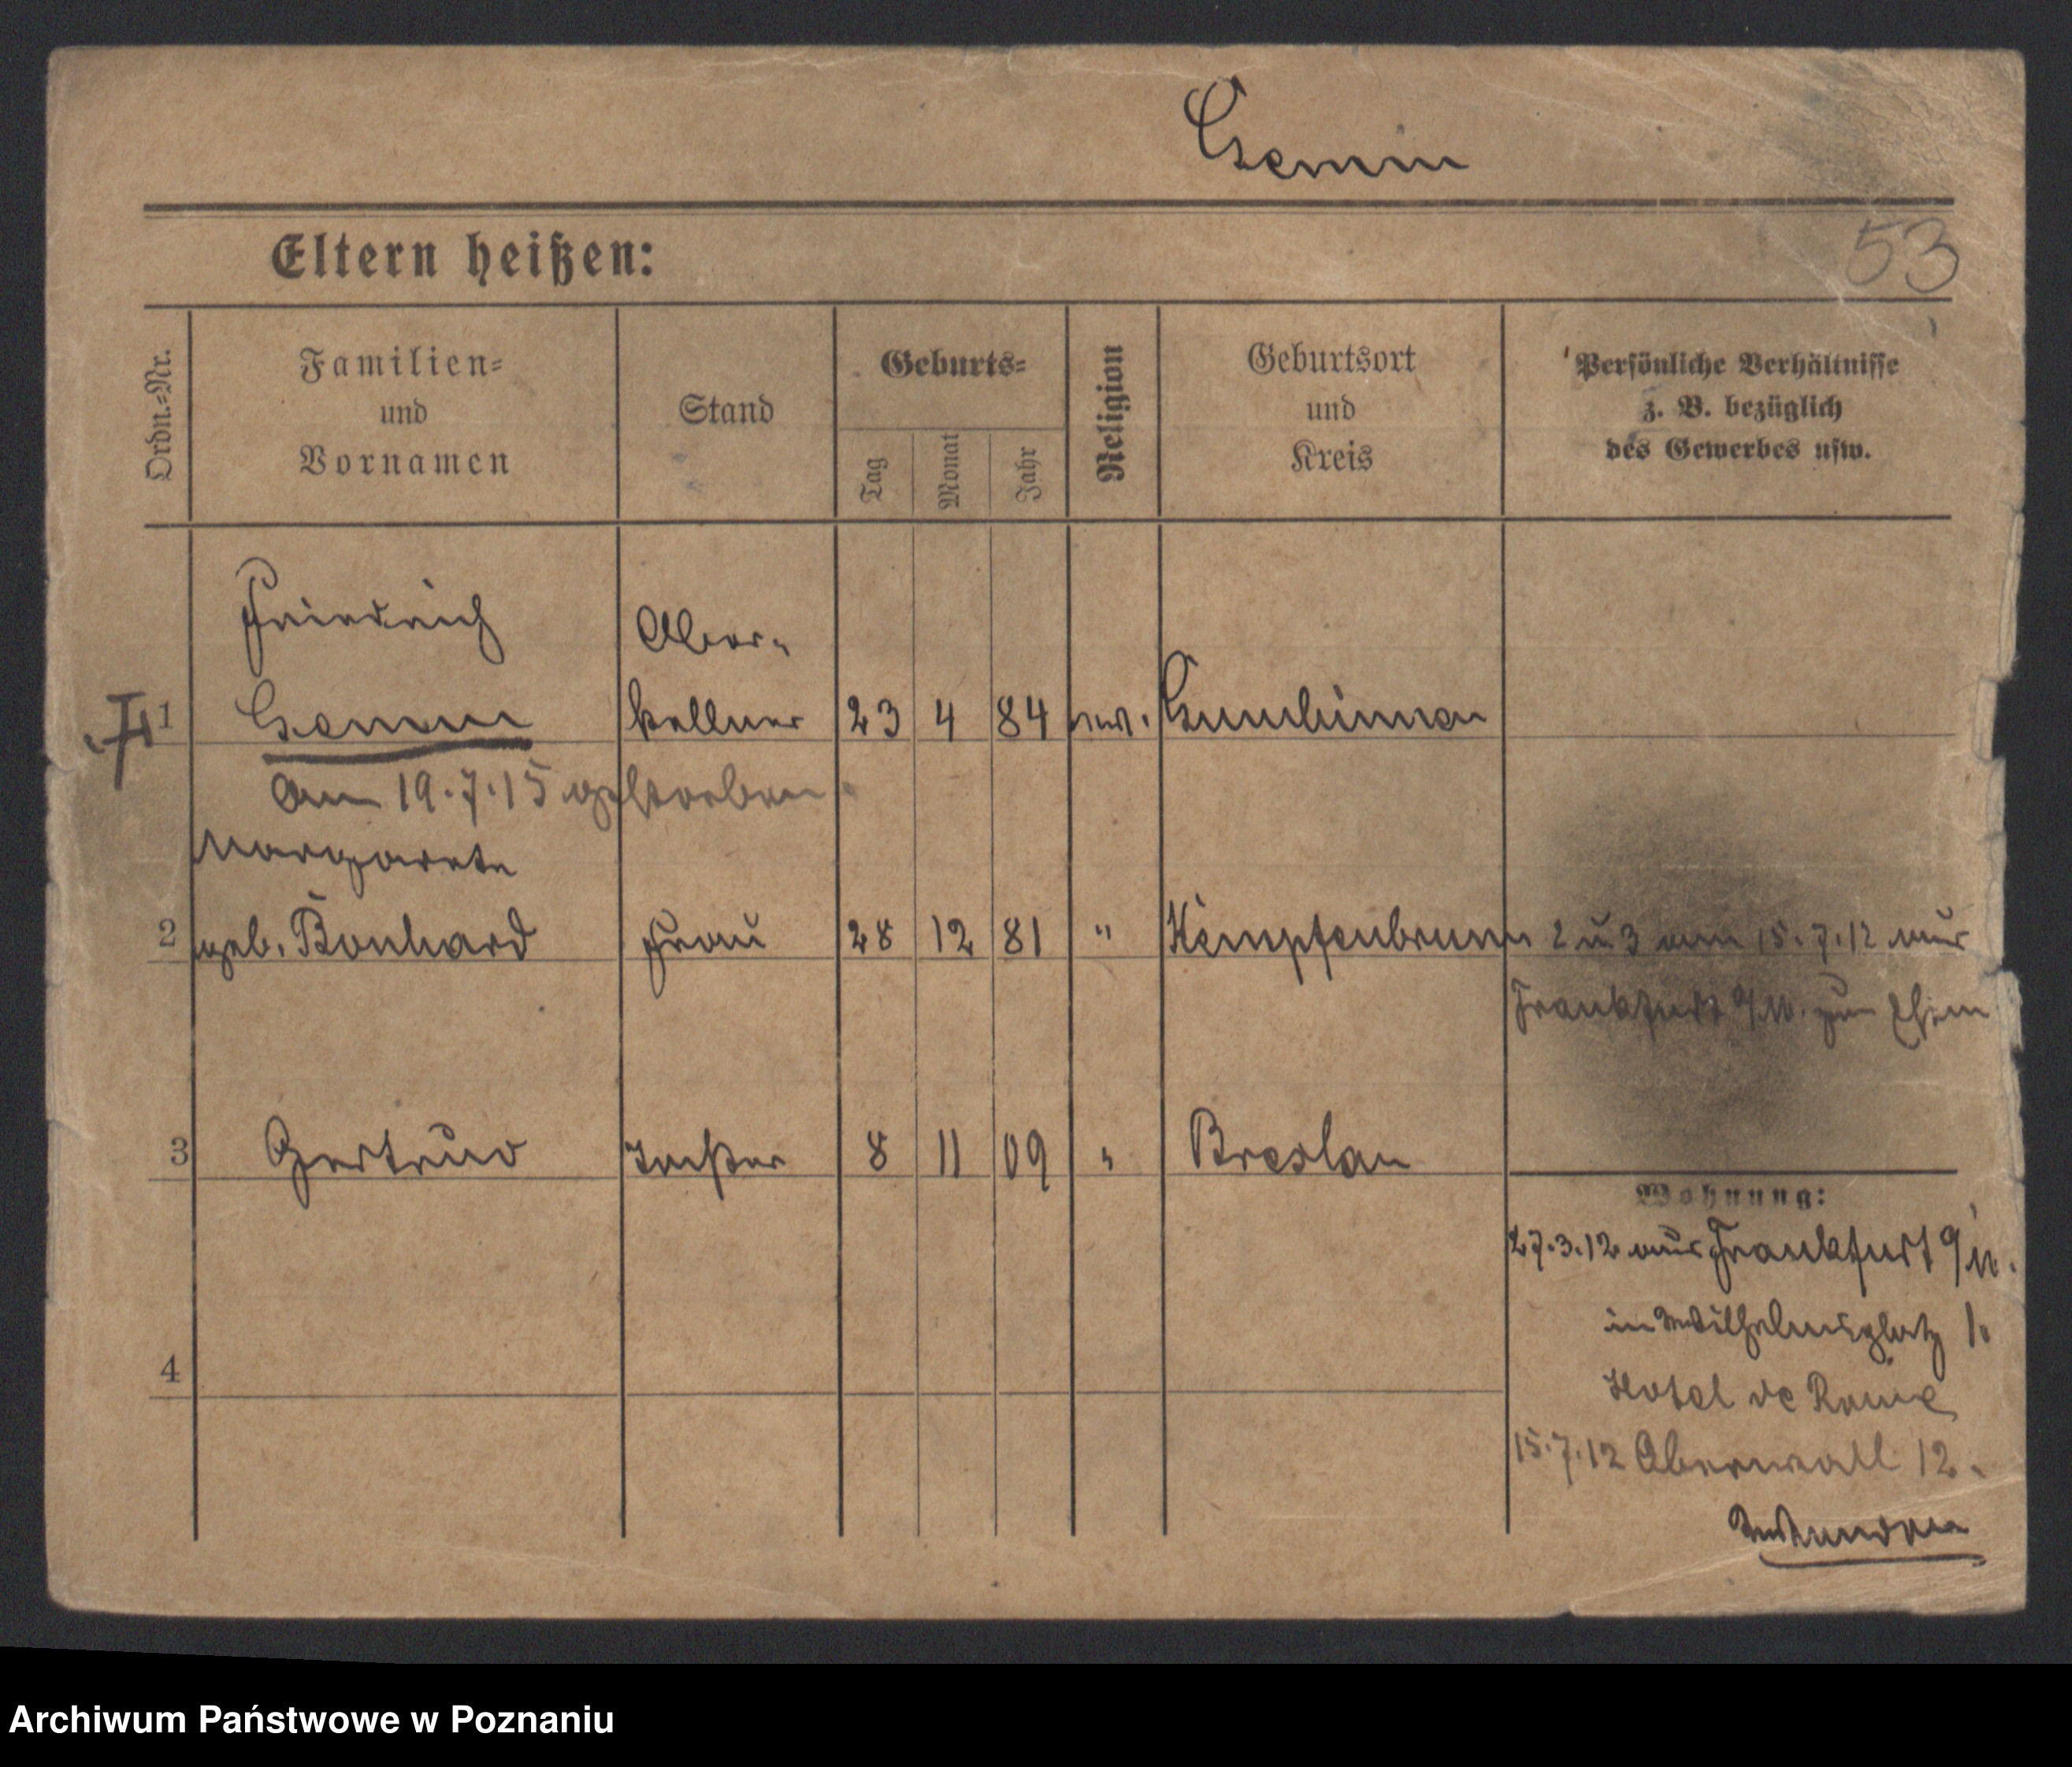 Gemm
53
Eltern heißen:
Ordn.-Nr.
Familien-
und
Vornamen
Stand
Geburts-
Tag
Monat
Jahr
Religion
Geburtsort
und
Kreis
Persönliche Verhältnisse
z. B. bezüglich
des Gewerbes usw.
Friedrich Ober-
1 Gemm kellner 23 4 84 Gumbinnen
Am 19.7.15 gestorben
Margarete
2 geb. Bonhard Frau 28 12 81 " Kempfenbrunn 2 u 3 am 15.7.12 aus
Frankfurt a/M. zum Ehem
3 Gertrud Tochter 8 11 09 " Breslau
Wohnung:
27.3.12 aus Frankfurt a/M.
in Wilhelmsplatz 1.
4
Hotel de Rome
15.7.12 Oberwall 12.
Archiwum Państwowe w Poznaniu